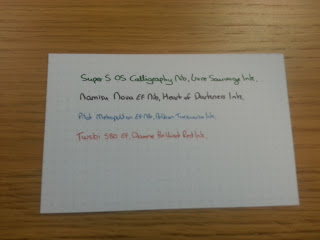 Super 5 OS Calligraphy Nib, Lierre Sauvage Ink.
Namisu Nova EF Nib, Heart of Darkness Ink.
Pilot Metropolitan EF Nib, Pelikan Turquoise Ink.
Twsbi 580 EF, Diamine Brilliant Red Ink.